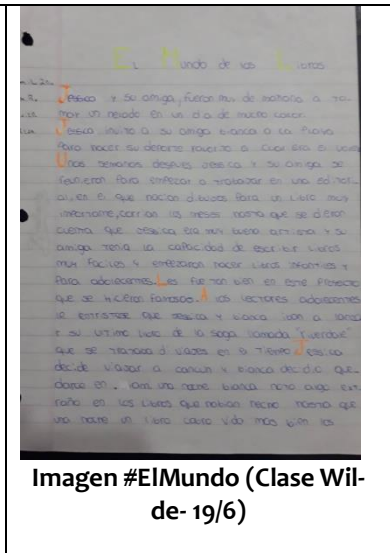 El Mundo de los Libros
Jessica y su amiga, fueron muy de mañana a to-
mar un helado en un dia de mucho calor.
Jessica invito a su amiga bianca a la Playa
Para hacer su deporte favorito el cual era el
Unas semanas despues Jessica y su amiga se
reunieron Para empezar a trabajar en una editor-
al, en el que hacian dibujos Para un libro muy
importante, corrian los meses hasta que se dieron
cuenta que Jessica era muy buena artista y su
amiga tenia la capacidad de escribir libros
muy faciles y empezaron hacer libros infantiles y
Para adolescentes. Les fue tan bien en este Proyecto
que se hicieron famosas. A los lectores adolescentes
le entristese que Jessica y bianca iban a lanzar
y su ultimo libro de la saga llamada
que se trataba d viajes en el tiempo Jessica
decide viajar a cancun y bianca decidio que-
darse en una noche bianca noto algo ext-
raño en los libros que habian hecho hasta que
una noche un libro cobro vida mas bien los
Imagen #ElMundo (Clase Wil-
de- 19/6)